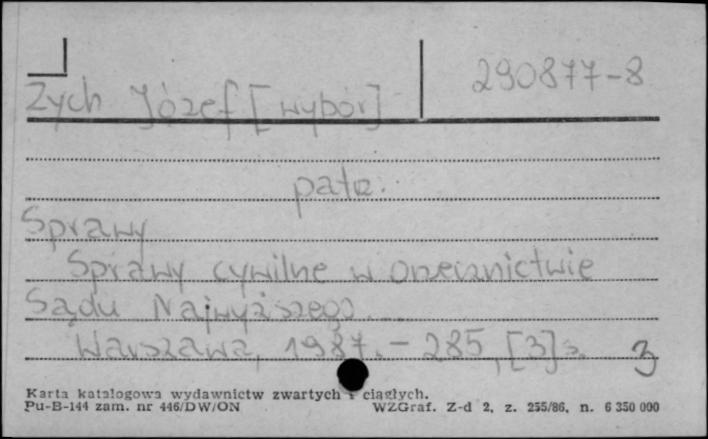 290877-8
Zych Józef [wybór]
patrz:
Sprawy
Sprawy cywilne w orzecznictwie
Sądu Najwyższego...
Warszawa, 1987. - 285, [3] s. 3
Karta katalogowa wydawnictw zwartych i ciągłych.
Pu-B-144 zam. nr 446/DW/ON WZGraf. Z-d 2, z. 255/86, n. 6 350 000